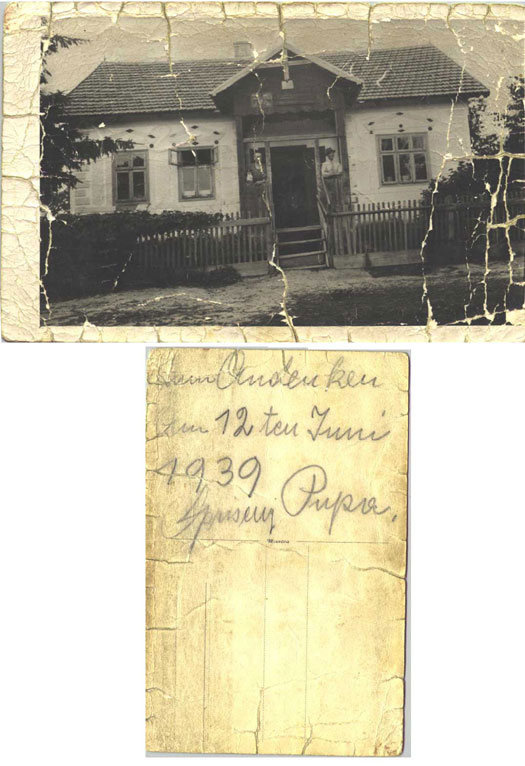 Zum Andenken
am 12 ten Juni
1939
Pupa.